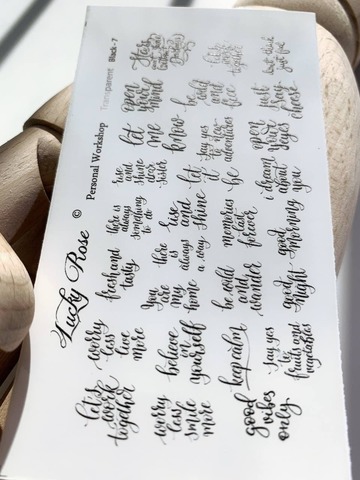 Lucky Rose ©
Personal Workshop
Transparent
Black - 7
let's
work
together
worry
less
live
more
fresh and
tasty
there is
always
something
to do
rise
and
shine
sister
let
me
know
open
your
mind
worry
less
smile
more
believe
in
yourself
You
are
my
home
there
is
always
a way
rise
and
shine
let
it
be
say yes
to new
adventures
be wild
and
free
together
good
vibes
only
keep calm
be wild
and
wander
memories
last
forever
i dream
about
you
open
your
eyes
just
say
cheese
say yes
to
fruits and
vegetables
good
night
good
morning